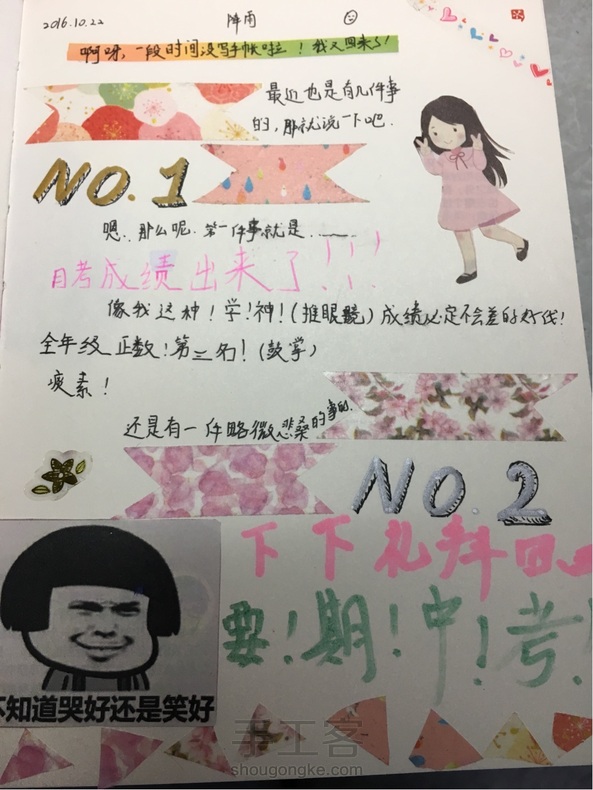 2016.10.22 阵雨
啊呀，一段时间没写手帐啦！我又回来了！
最近也是有几件事
的，那就说一下吧．
NO.1
嗯．那么呢．第一件事就是……
月考成绩出来了！！！
像我这种！学！神！（推眼镜）成绩必定不会差的好伐！
全年级正数！第三名！（鼓掌）
疲素！
还是有一件略微悲桑的事的．
NO.2
下下礼拜四
要！期！中！考！
不知道哭好还是笑好
手工客
shougongke.com